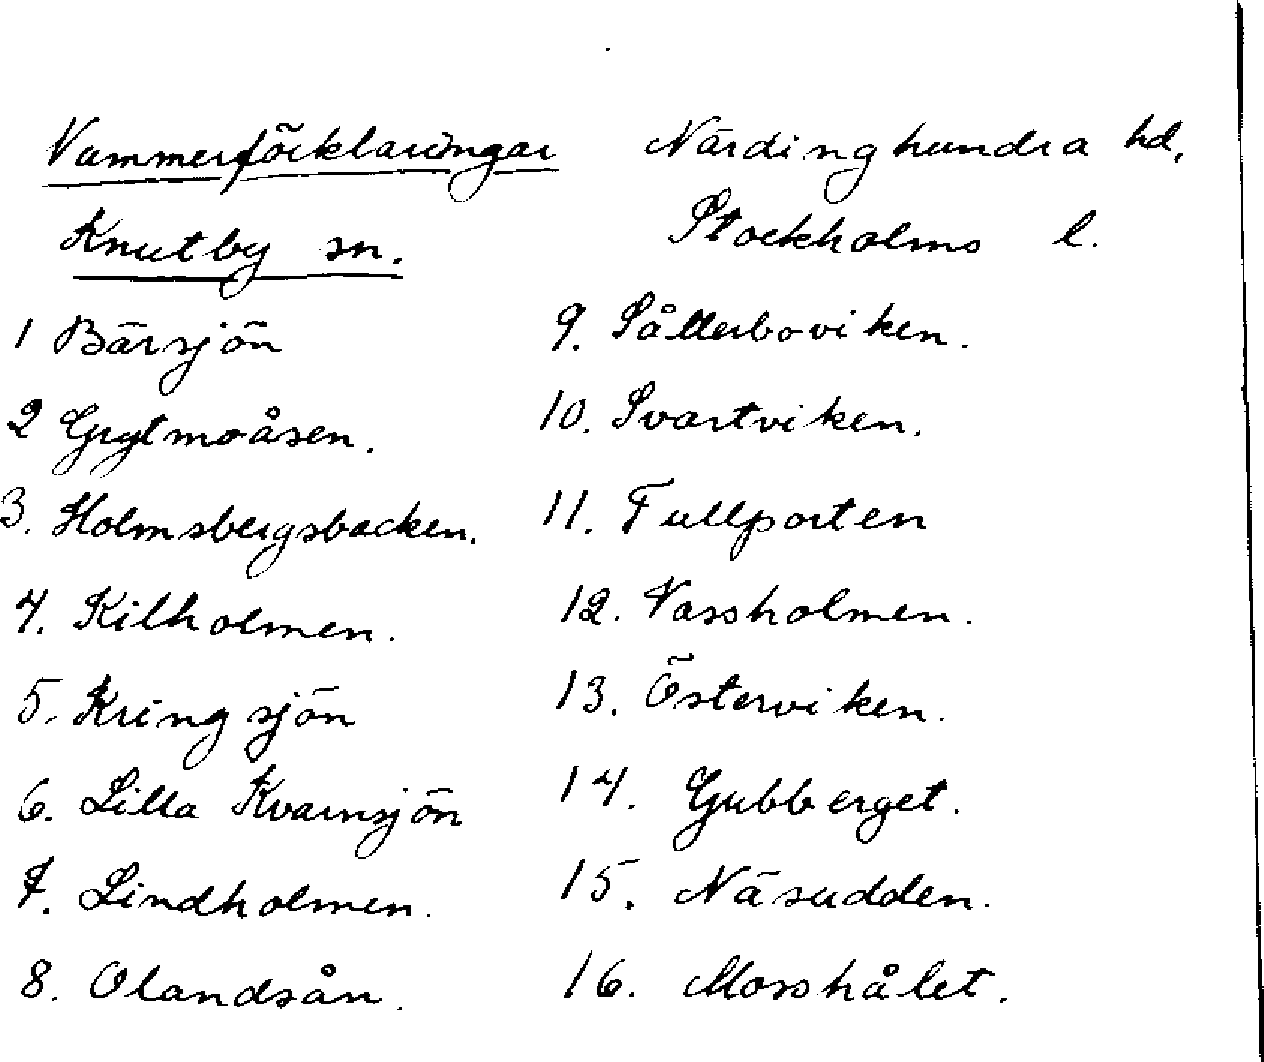 Namnerförklaringar Närdinghundra hd,
Knutby sn. Stockholms l.
1 Bärsjön
2 Grytmoåsen.
3. Holmsbergsbacken.
4. Kilholmen.
5. Kringsjön
6. Lilla Kvarnsjön
7. Lindholmen.
8. Olandsån.
9. Sätterboviken.
10. Svartviken.
11. Tullporten
12. Vassholmen.
13. Österviken.
14. Gubberget.
15. Näsudden.
16. Mosshålet.